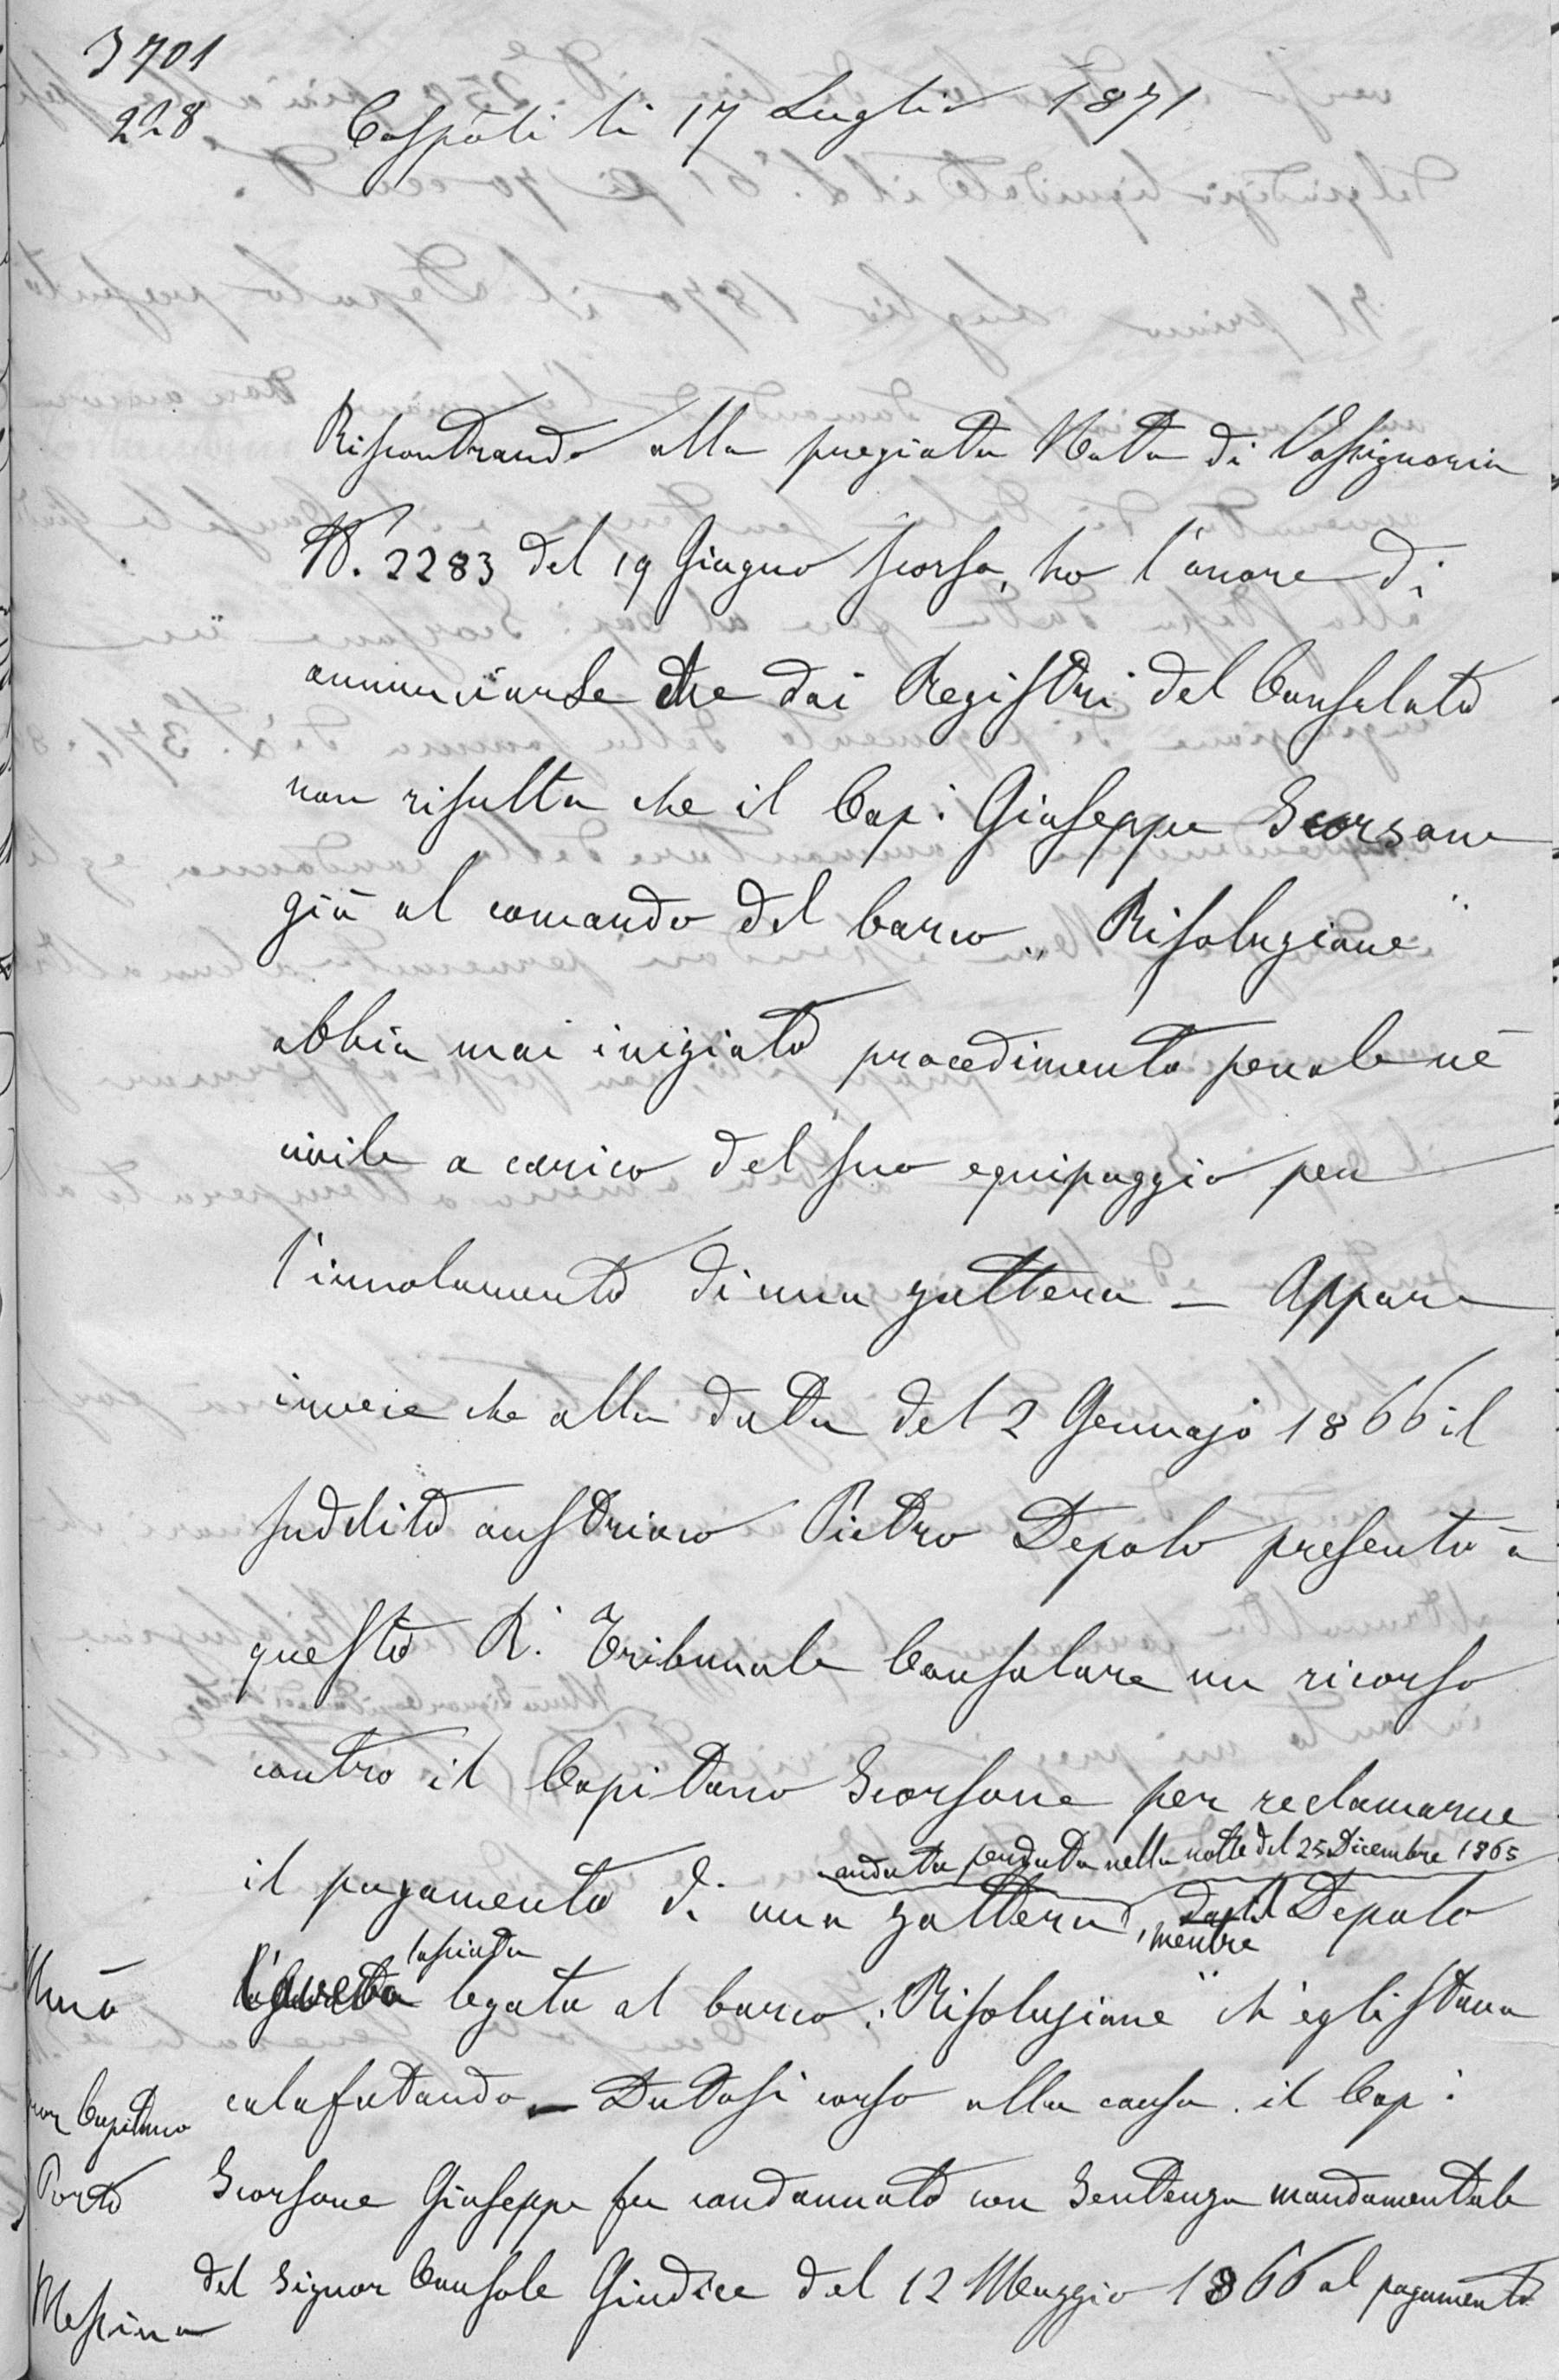 3701
228
Cospoli li 17 Luglio 1871
Riscontrando alla pregiata Nota di Vossignoria
N. 2283 del 19 Giugno scorso, ho l'onore di
annunciarle che dai Registri del Consolato
non risulta che il Cap: Giuseppe Scorsone
già al comando del barco „Risoluzione"
abbia mai iniziato procedimento penale nè
civile a carico del suo equipaggio per
l'involamento di una zattera — Appare
invece che alla data del 2 Gennajo 1866 il
suddito austriaco Pietro Depolo presentò a
questo R. Tribunale Consolare un ricorso
contro il Capitano Scorsone per reclamarne
andata perduta nella notte del 25 Dicembre 1865
il pagamento di una zattera, dal Depolo
mentre
lasciata
legata al barco „Risoluzione" ch'egli stava
calafatando — Datosi corso alla causa il Cap:
Scorsone Giuseppe fu condannato con Sentenza mandamentale
del Signor Console Giudice del 12 Maggio 1866 al pagamento
Capitano
Porto
Messina